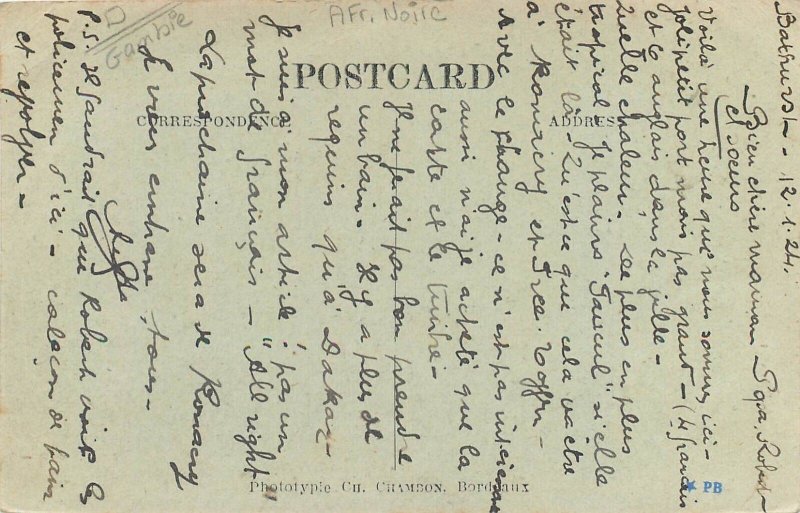 D
Gambie
Afr. Noire
POSTCARD
CORRESPONDENCE
ADDRESS
Bathurst - 12.1.24.
Bien chère maman - Papa, Robert -
et soeurs
Voilà une heure que nous sommes ici -
joli petit port mais pas grand - (4 français
et 6 anglais dans la ville -
Quelle chaleur - de plus en plus
tropical. Je plains " " si elle
était là - Qu'est ce que cela va être
à Konacry et Free. -
Avec le change - ce n'est pas
aussi n'ai je acheté que la
carte et le timbre -
Il ne ferait pas bon prendre
un bain - Il y a plus de
requins qu'à Dakar -
Je suis à mon article : pas un
mot de français - "All right"
La prochaine sera de Konacry
Je vous embrasse tous -
P.S. Il faudrait que Robert voit les
policemen d'ici - caleçon de bain
et
Phototypie CH. CHAMBON, Bordeaux
PB